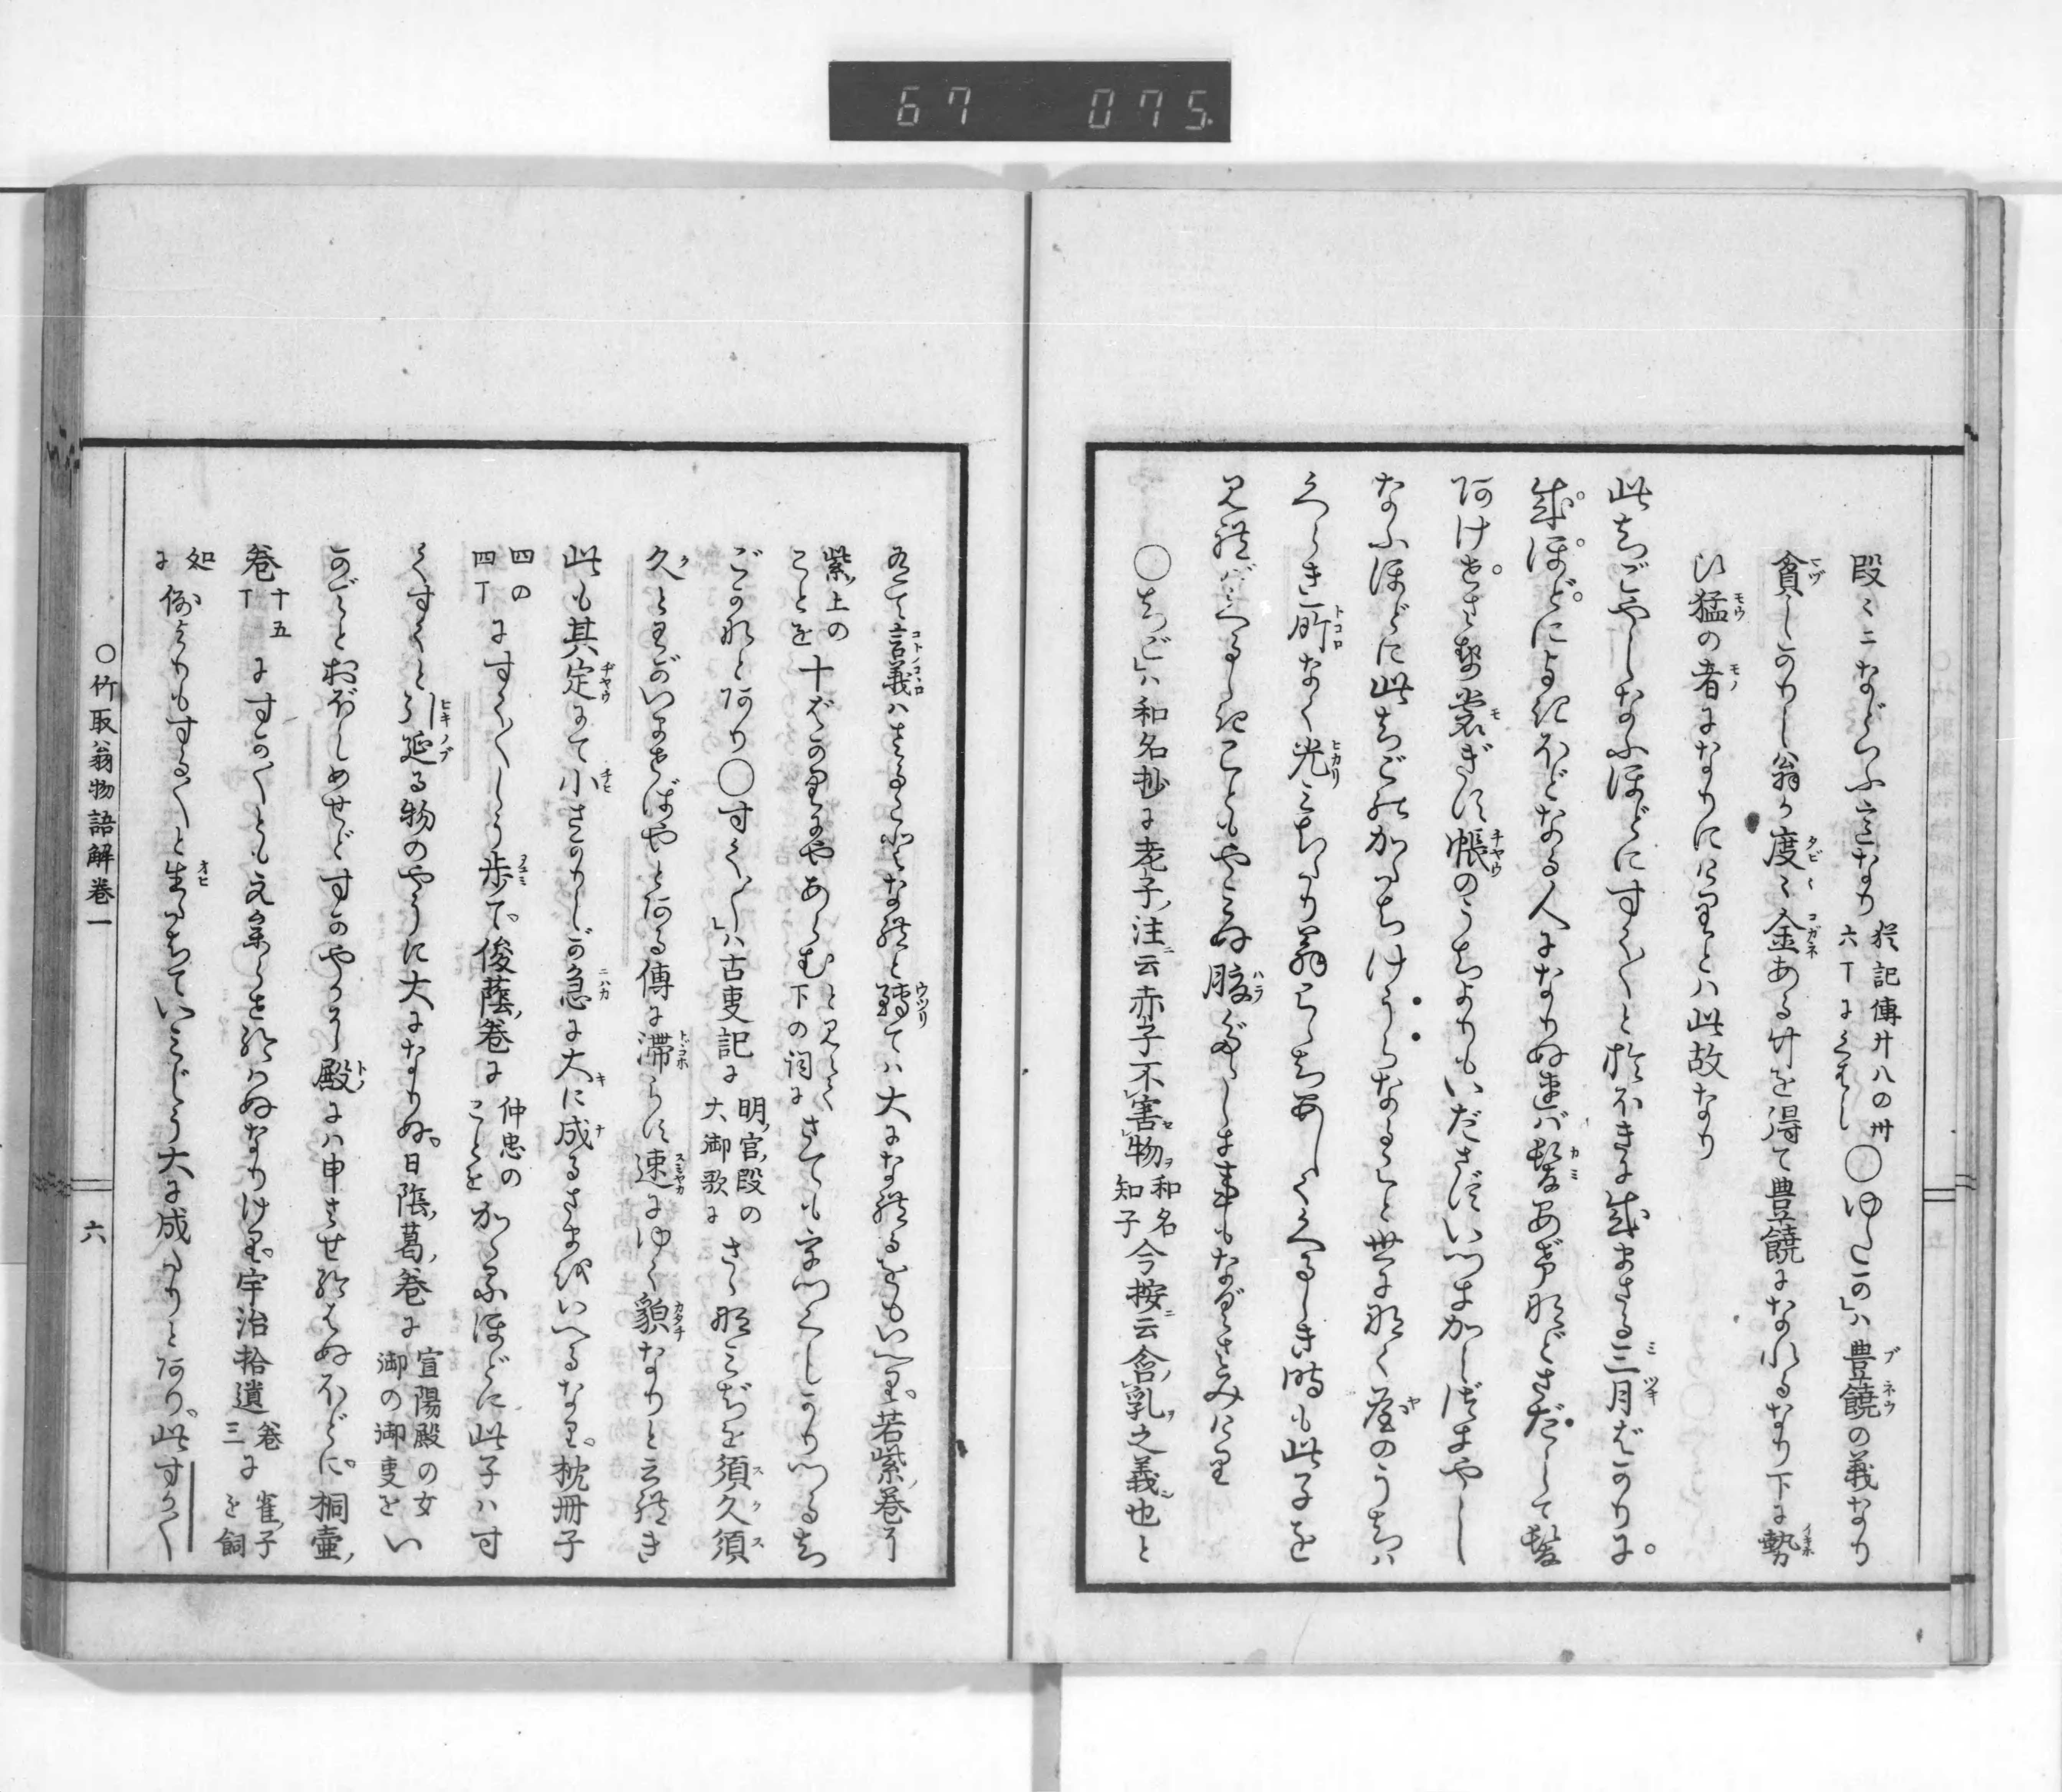 67 075
段〻ニなどいふ意なり 猶記傳廿八の卅六丁に委し ○ゆたかの」ハ豊饒の義なり
貧しかりし翁が度〻金ある竹を得て豊饒になれるなり下に勢
ひ猛の者になりにけりとハ此故なり
此ちごやしなふほどにすく〱と於ほきに成まさる三月ばかりに。
成。ほど。によきほどなる人になりぬれバ髪あげなどさだして髪
阿けせさせ裳ぎす帳のうちよりもいださずいつきかしづきやし
なふほどに此ちごのかたちけうらなること世になく屋のうちハ
くらき所なく光みちたり翁こゝちあしくくるしき時も此子を
見れバくるしきこともやみぬ腹だゝしき事もなぐさみけり
○ちご」ハ和名抄に老子注云赤子不害物和名知子今按云含乳之義也と
有て言義ハさることなれど轉てハ大になれるをもいへり。若紫巻に
紫上のことを十ばかりにやあらむと見えて下の詞にさても字つくしかりつるち
ごかなとあり○すく〱」ハ古事記に明宮段の大御歌にさゝなみぢを須久須
久とわがいませばやとある傳に滞らず速にゆく貌なりと云れき
此も其定にて小さかりしが急に大に成るさまをいへるなり。枕冊子
四の四丁にすく〱しう歩て。俊蔭巻に仲忠のことをかゝるほどに此子ハす
くすくと引延る物のやうに大になりぬ。日蔭葛巻に宣陽殿の女御の御事をい
かでことおぼしめせどすかやかに殿にハ申させ給はぬほどに。桐壷
巻十五丁にすか〱ともえ参らせ給はぬなりけり。宇治拾遺巻三に雀子を飼
処に例よりもする〱と生たちていみじう大に成たりと阿り。此すか〱
○竹取翁物語解巻一
六